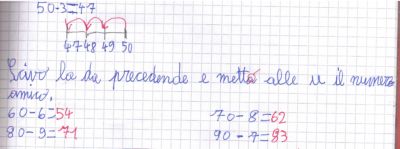 50-3=47
47 48 49 50
Scrivo la da precedende e metto alle u il numero
amico.
60-6=54 70-8=62
80-9=71 90-7=83